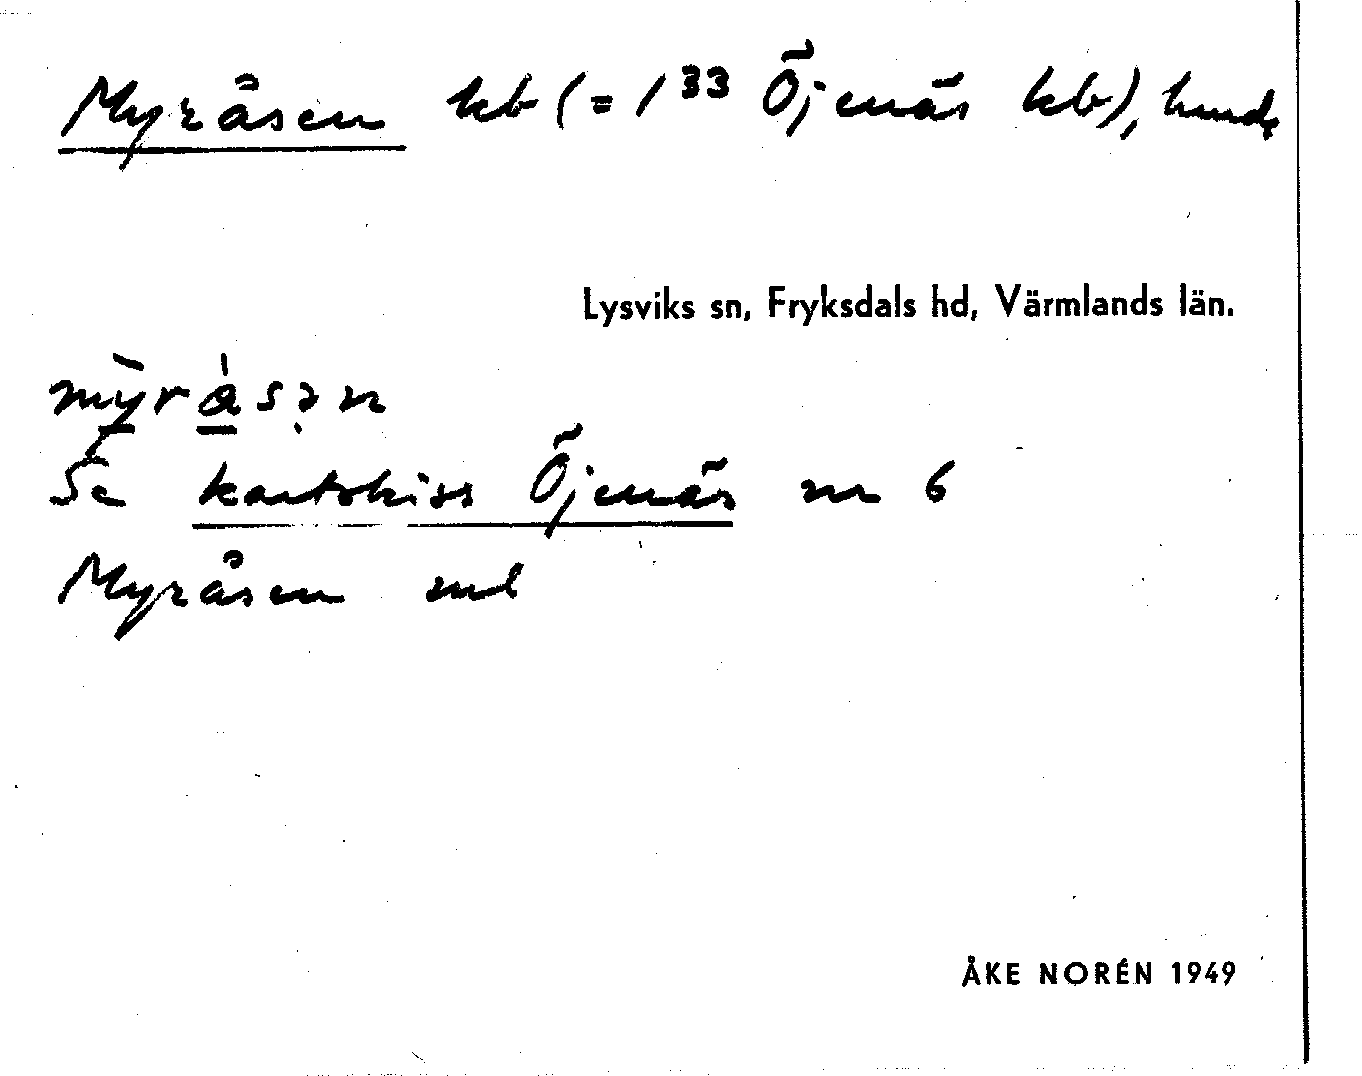 Myråsen kb (= 1³³ Öjenäs kb),
Lysviks sn, Fryksdals hd, Värmlands län.
Se kartskiss Öjenäs nr 6
Myråsen
ÅKE NORÉN 1949